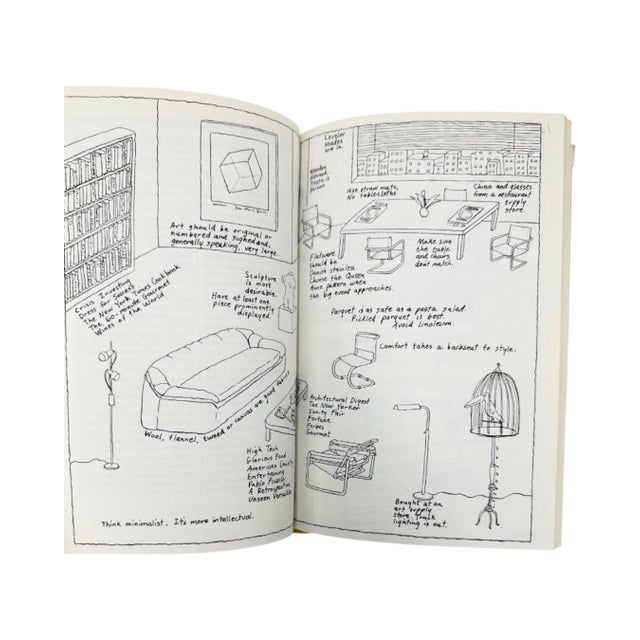 Art should be original or
numbered and signed and,
generally speaking, very large.
Crisis Investing
Dress for Success
The New York Times Cookbook
The 60-minute Gourmet
Wines of the World
Sculpture
is most
desirable.
Have at least one
piece prominently
displayed
Wool, flannel, tweed or canvas are good fabrics
High Tech
Glorious Food
American Country
Entertaining
Pablo Picasso
A Retrospective
Unseen Versailles
Think minimalist. It's more intellectual.
Levelor
Shades
are in.
Wooden
Use straw mats,
No tablecloths.
China and glasses
from a restaurant
supply
store.
Flatware
should be
Danish stainless.
Choose the Queen
Anne pattern when
the big event approaches.
Make sure
the table
and chairs
don't match.
Parquet is as safe as a pasta salad
Pickled parquet is best.
Avoid linoleum.
Comfort takes a backseat to style.
Architectural Digest
The New Yorker
Vanity Fair
Fortune
Forbes
Gourmet
Bought at an
art supply
store. Track
lighting is out.